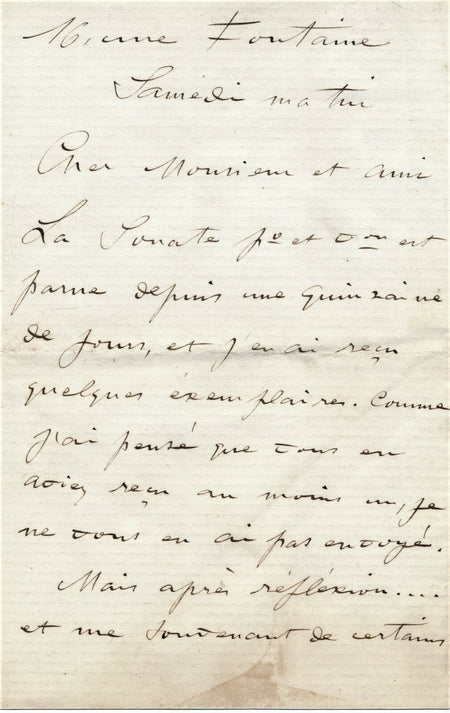 16, rue Fontaine
Samedi matin
Cher Monsieur et ami
La Sonate po et von est
parue depuis une quinzaine
de jours, et j'en ai reçu
quelques éxemplaires. Comme
j'ai pensé que vous en
aviez reçu au moins un, je
ne vous en ai pas envoyé.
Mais après réfléxion....
et me souvenant de certains